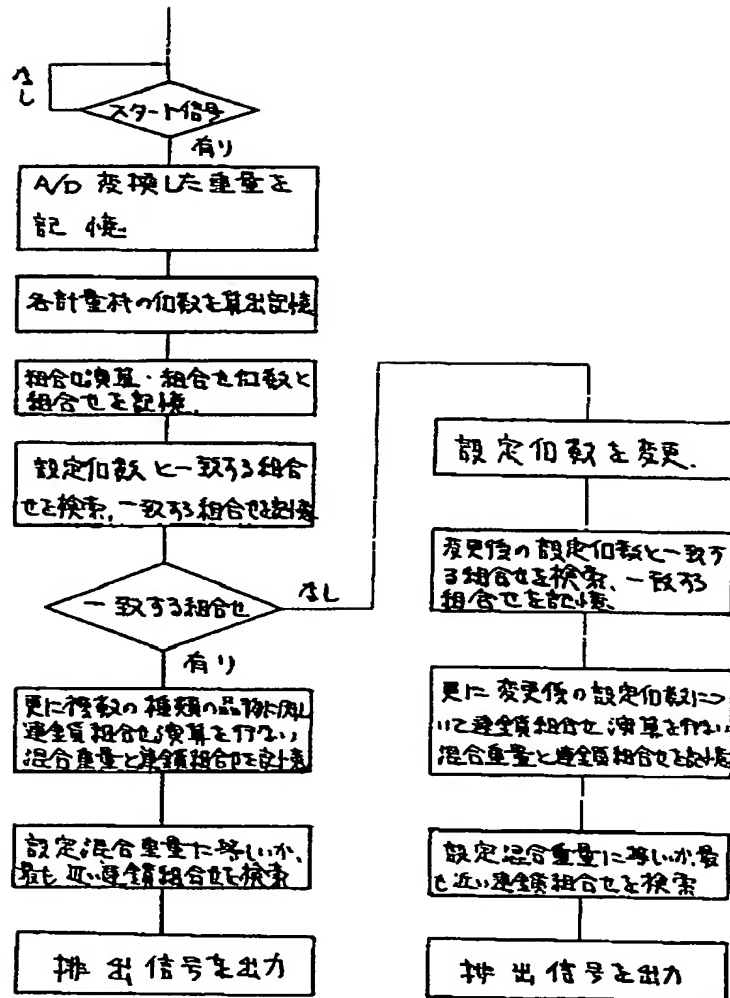 なし
スタート信号
有り
A/D 変換した重量を
記憶
各計量秤の個数を算出記憶
組合せ演算・組合せ個数と
組合せを記憶.
設定個数と一致する組合
せを検索、一致する組合せを記憶
一致する組合せ
なし
有り
更に複数の種類の品物に関し
連鎖組合せ演算を行ない
混合重量と連鎖組合せを記憶
設定混合重量に等しいか、
最も近い連鎖組合せを検索
排出信号を出力
設定個数を変更.
変更後の設定個数と一致す
る組合せを検索、一致する
組合せを記憶
更に変更後の設定個数につ
いて連鎖組合せ演算を行ない
混合重量と連鎖組合せを記憶
設定混合重量に等しいか、最
も近い連鎖組合せを検索
排出信号を出力